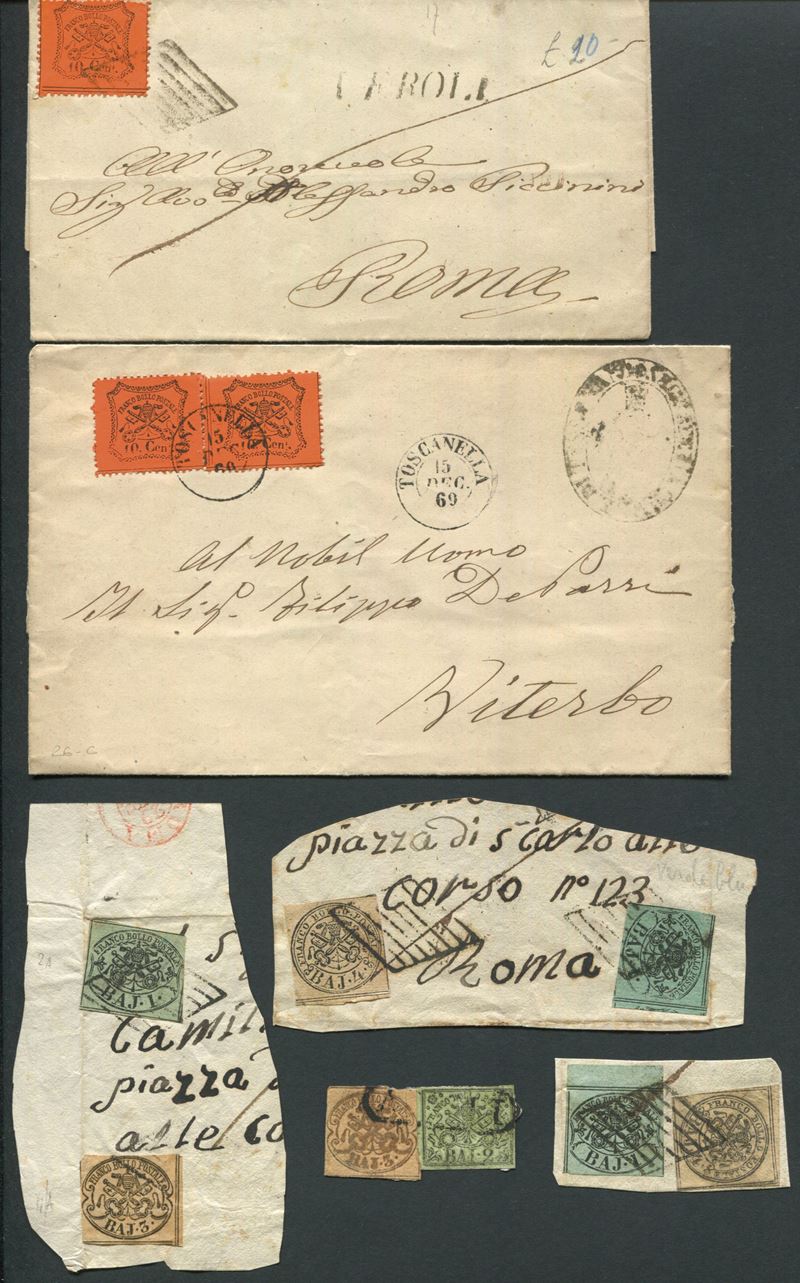 FRANCO BOLLO POSTALE
10 Cent.
17
£ 20-
VEROLI
All' Onorevole
Sig. Avv. Alessandro Piccinini
Roma
FRANCO BOLLO POSTALE
10 Cent
FRANCO BOLLO POSTALE
10 Cent.
TOSCANELLA
15
DEC.
69
TOSCANELLA
15
DEC.
69
Al Nobil Uomo
Il Sig. Filippo De Parri
Viterbo
26-C
piazza di S. Carlo alle
corso no 123
verde blu
FRANCO BOLLO POSTALE
BAJ. 4.
BAJ. 1.
Roma
2A
FRANCO BOLLO POSTALE
BAJ. 1.
Camil
piazza
alle co
FRANCO BOLLO POSTALE
BAJ. 3.
BAJ. 3.
BAJ. 2
FRANCO BOLLO
BAJ. 1
FRANCO BOLLO